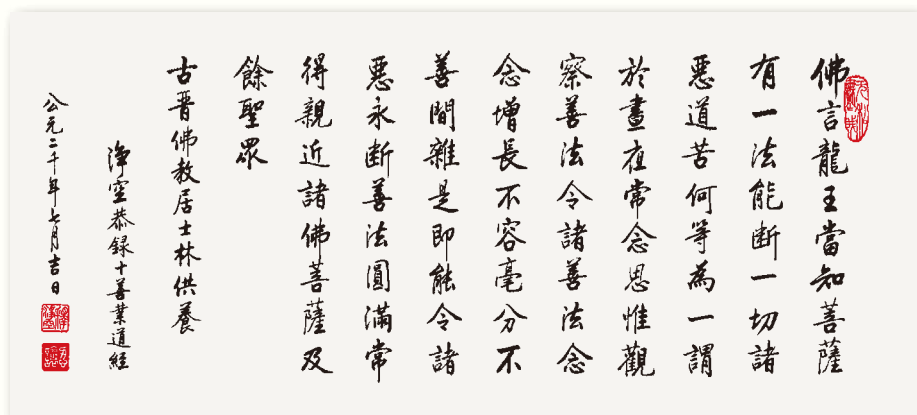 佛言龍王當知菩薩
有一法能断一切諸
惡道苦何等為一謂
於晝夜常念思惟觀
察善法令諸善法念
念增長不容毫分不
善間雜是即能令諸
惡永断善法圓滿常
得親近諸佛菩薩及
餘聖眾
古晋佛教居士林供養
淨空恭録十善業道經
公元二千年七月吉日